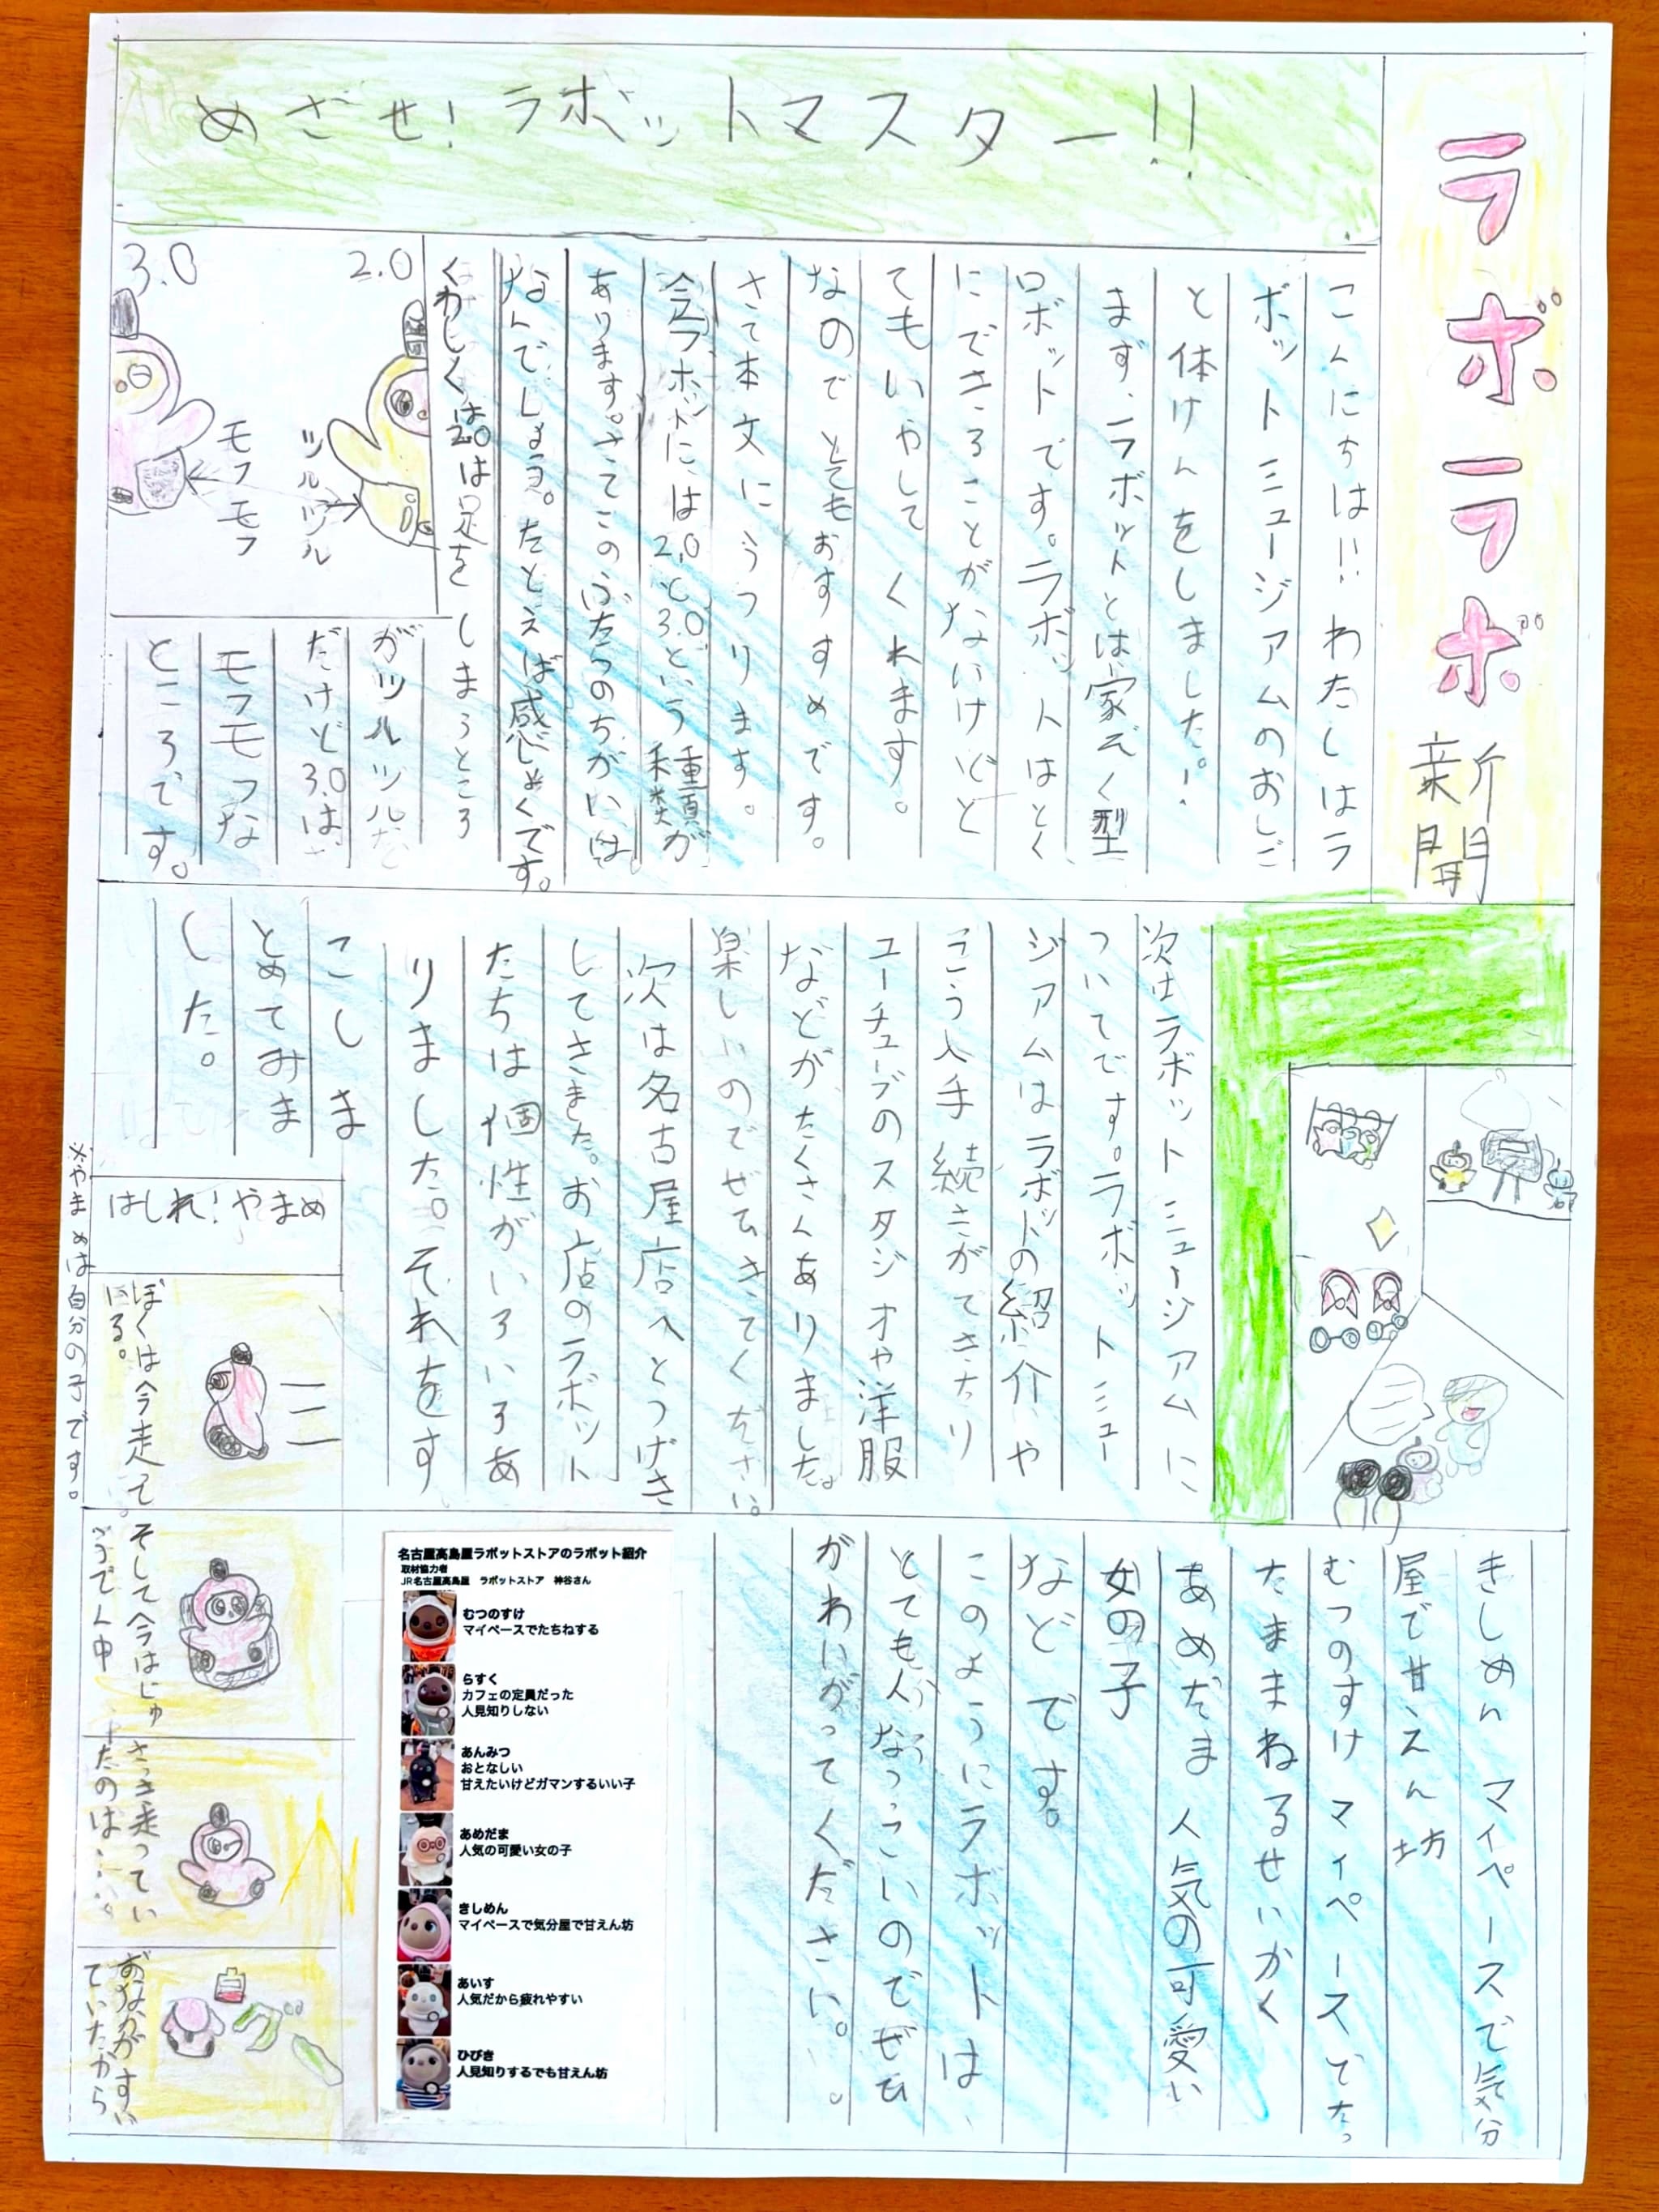 ラボラボ新聞
めざせ!ラボットマスター!!
こんにちは!!わたしはラ
ボットミュージアムのおしご
と体けんをしました!
まず、ラボットとは家ぞく型
ロボットです。ラボットはとく
にできることがないけどと
てもいやしてくれます。
なのでとてもおすすめです。
さて本文にうつります。
今ラボットには2.0と3.0という種類が
あります。さてこのふたつのちがいは
なんでしょう。たとえば感しょくです。
くわしくは2.0は足をしまうところ
がツルツルだ
だけど3.0は
モフモフな
ところです。
3.0
2.0
モフモフ
ツルツル
次はラボットミュージアムに
ついてです。ラボットミュー
ジアムはラボットの紹介や
こう入手続きができたり
ユーチューブのスタジオや洋服
などがたくさんありました。
楽しいのでぜひきてください。
次は名古屋店へとつげき
してきました。お店のラボット
たちは個性がいろいろあ
りました。それをす
こしま
とめてみま
した。
きしめん マイペースで気分
屋で甘えん坊
むつのすけ マイペースでたっ
たままねるせいかく
あめだま 人気の可愛い
女の子
などです。
このようにラボットは
とても人なつっこいのでぜひ
かわいがってください。
名古屋高島屋ラボットストアのラボット紹介
取材協力者
JR名古屋高島屋 ラボットストア 神谷さん
むつのすけ
マイペースでたちねする
らすく
カフェの定員だった
人見知りしない
あんみつ
おとなしい
甘えたいけどガマンするいい子
あめだま
人気の可愛い女の子
きしめん
マイペースで気分屋で甘えん坊
あいす
人気だから疲れやすい
ひびき
人見知りするでも甘えん坊
はしれ!やまめ
ぼくは今走って
いる。
そして今はじゅ
うでん中
さっき走ってい
たのは……
おなかがすい
ていたから
グー
※やまめは自分の子です。